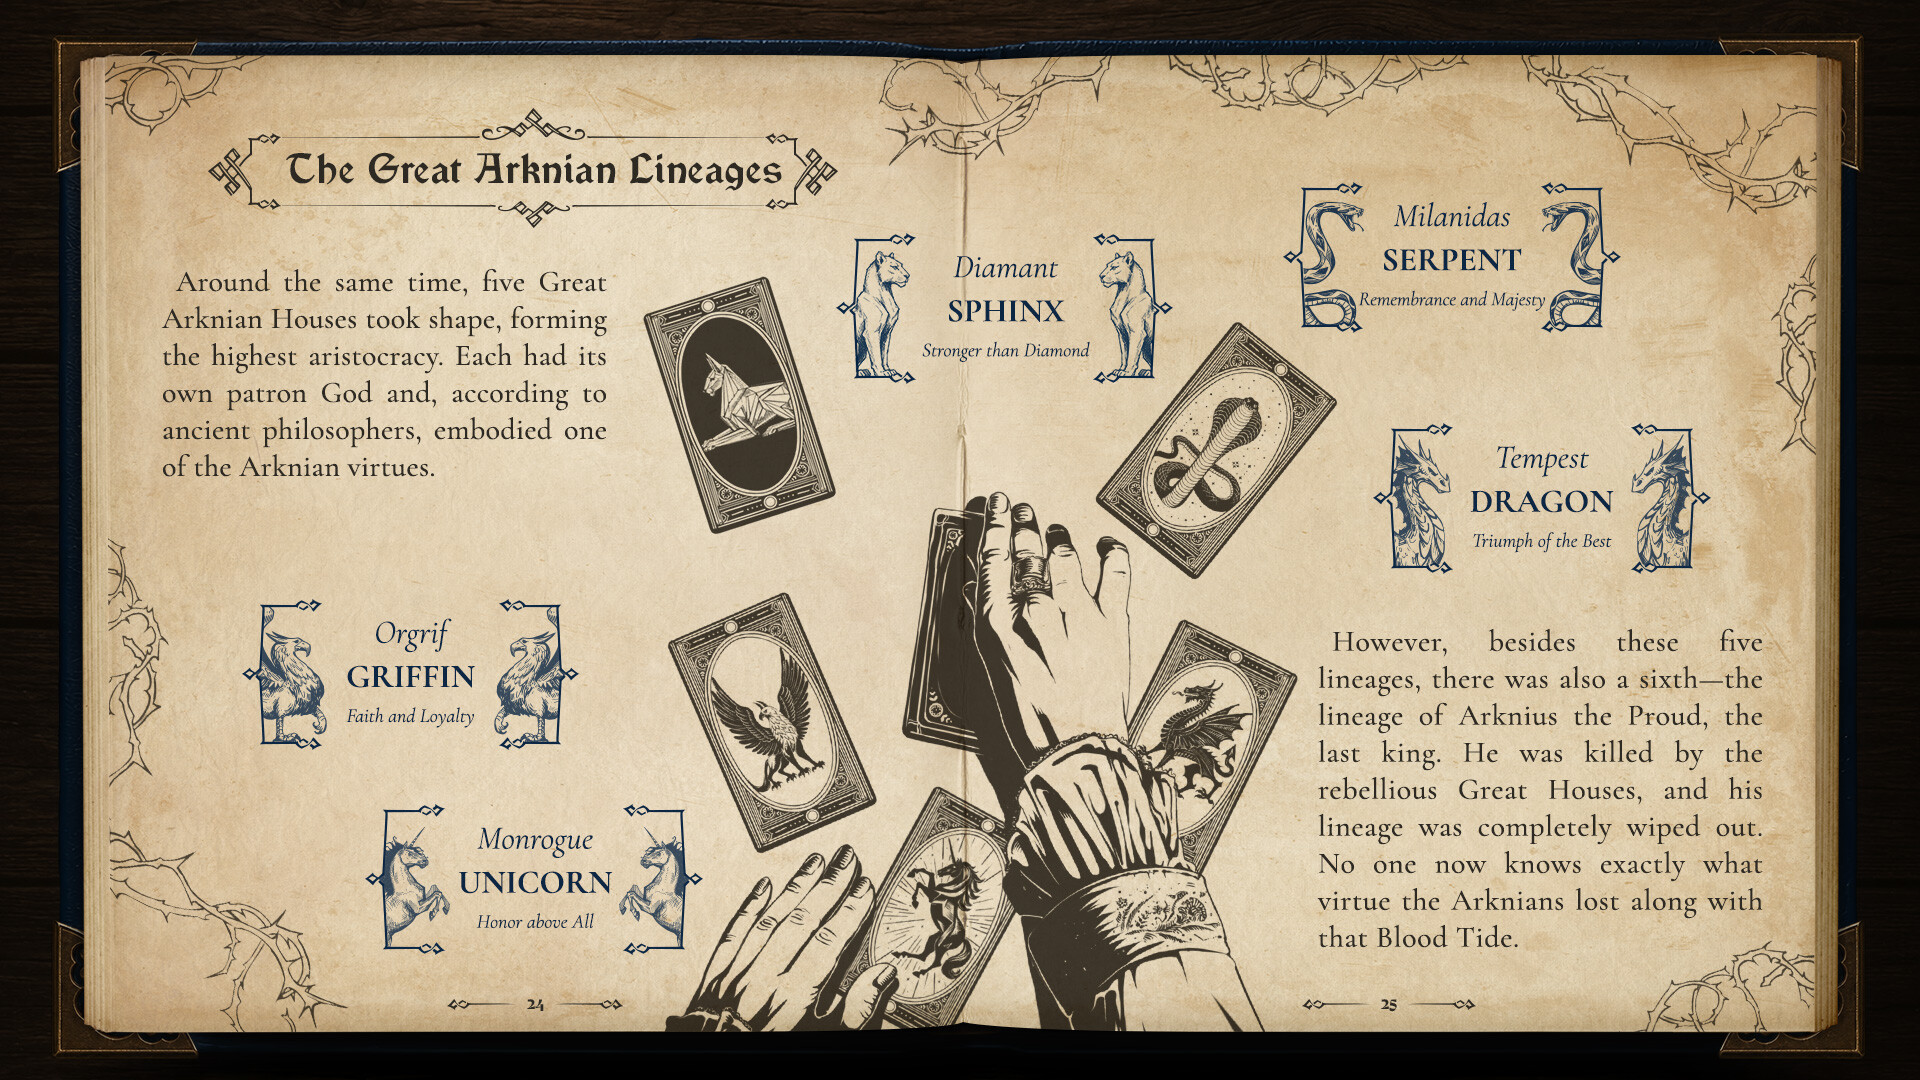 The Great Arknian Lineages
Around the same time, five Great
Arknian Houses took shape, forming
the highest aristocracy. Each had its
own patron God and, according to
ancient philosophers, embodied one
of the Arknian virtues.
Orgrif
GRIFFIN
Faith and Loyalty
Monrogue
UNICORN
Honor above All
24
Diamant
SPHINX
Stronger than Diamond
Milanidas
SERPENT
Remembrance and Majesty
Tempest
DRAGON
Triumph of the Best
However, besides these five
lineages, there was also a sixth—the
lineage of Arknius the Proud, the
last king. He was killed by the
rebellious Great Houses, and his
lineage was completely wiped out.
No one now knows exactly what
virtue the Arknians lost along with
that Blood Tide.
25